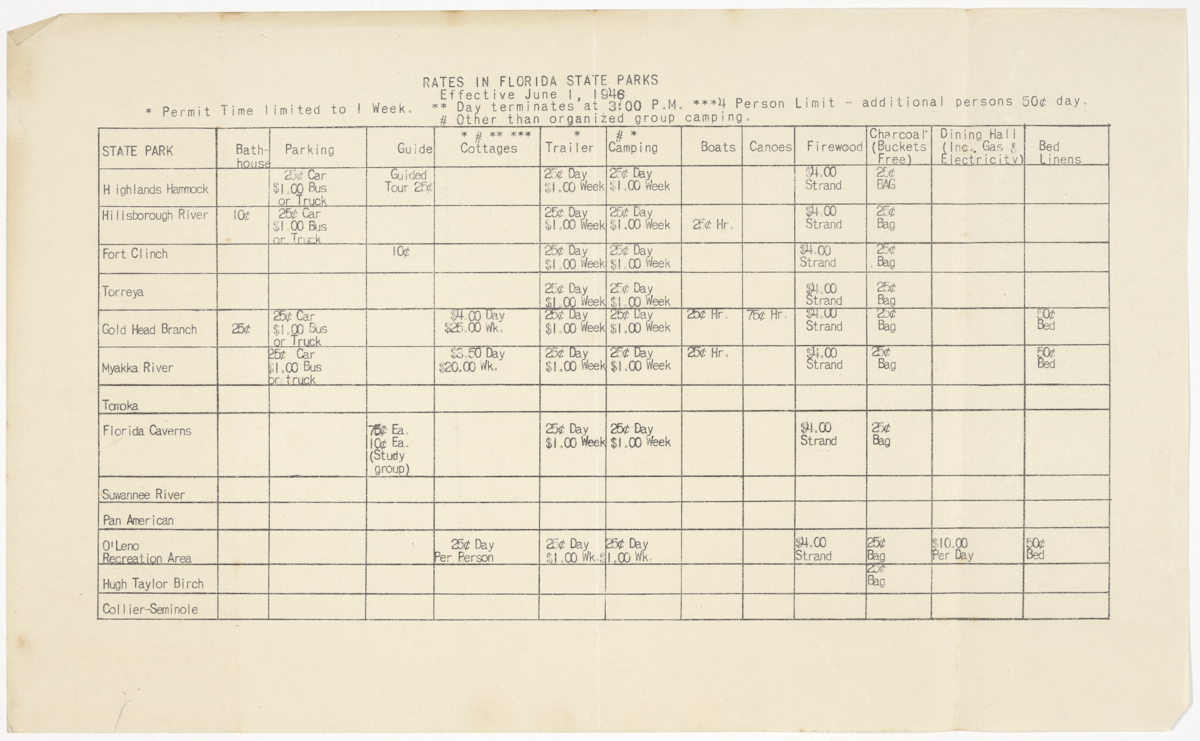 RATES IN FLORIDA STATE PARKS
Effective June 1, 1946
* Permit Time limited to 1 Week. ** Day terminates at 3:00 P.M. ***4 Person Limit - additional persons 50¢ day.
# Other than organized group camping.
STATE PARK Bath-house Parking Guide * # ** *** Cottages * Trailer # * Camping Boats Canoes Firewood Charcoal (Buckets Free) Dining Hall (Inc. Gas & Electricity) Bed Linens
Highlands Hammock 25¢ Car $1.00 Bus or Truck Guided Tour 25¢ 25¢ Day $1.00 Week 25¢ Day $1.00 Week $4.00 Strand 25¢ BAG
Hillsborough River 10¢ 25¢ Car $1.00 Bus or Truck 25¢ Day $1.00 Week 25¢ Day $1.00 Week 25¢ Hr. $4.00 Strand 25¢ Bag
Fort Clinch 10¢ 25¢ Day $1.00 Week 25¢ Day $1.00 Week $4.00 Strand 25¢ Bag
Torreya 25¢ Day $1.00 Week 25¢ Day $1.00 Week $4.00 Strand 25¢ Bag
Gold Head Branch 25¢ 25¢ Car $1.00 Bus or Truck $4.00 Day $25.00 Wk. 25¢ Day $1.00 Week 25¢ Day $1.00 Week 25¢ Hr. 75¢ Hr. $4.00 Strand 25¢ Bag 50¢ Bed
Myakka River 25¢ Car $1.00 Bus or truck $3.50 Day $20.00 Wk. 25¢ Day $1.00 Week 25¢ Day $1.00 Week 25¢ Hr. $4.00 Strand 25¢ Bag 50¢ Bed
Tomoka
Florida Caverns 75¢ Ea. 10¢ Ea. (Study group) 25¢ Day $1.00 Week 25¢ Day $1.00 Week $4.00 Strand 25¢ Bag
Suwannee River
Pan American
O'Leno Recreation Area 25¢ Day Per Person 25¢ Day $1.00 Wk. 25¢ Day $1.00 Wk. $4.00 Strand 25¢ Bag $10.00 Per Day 50¢ Bed
Hugh Taylor Birch 25¢ Bag
Collier-Seminole